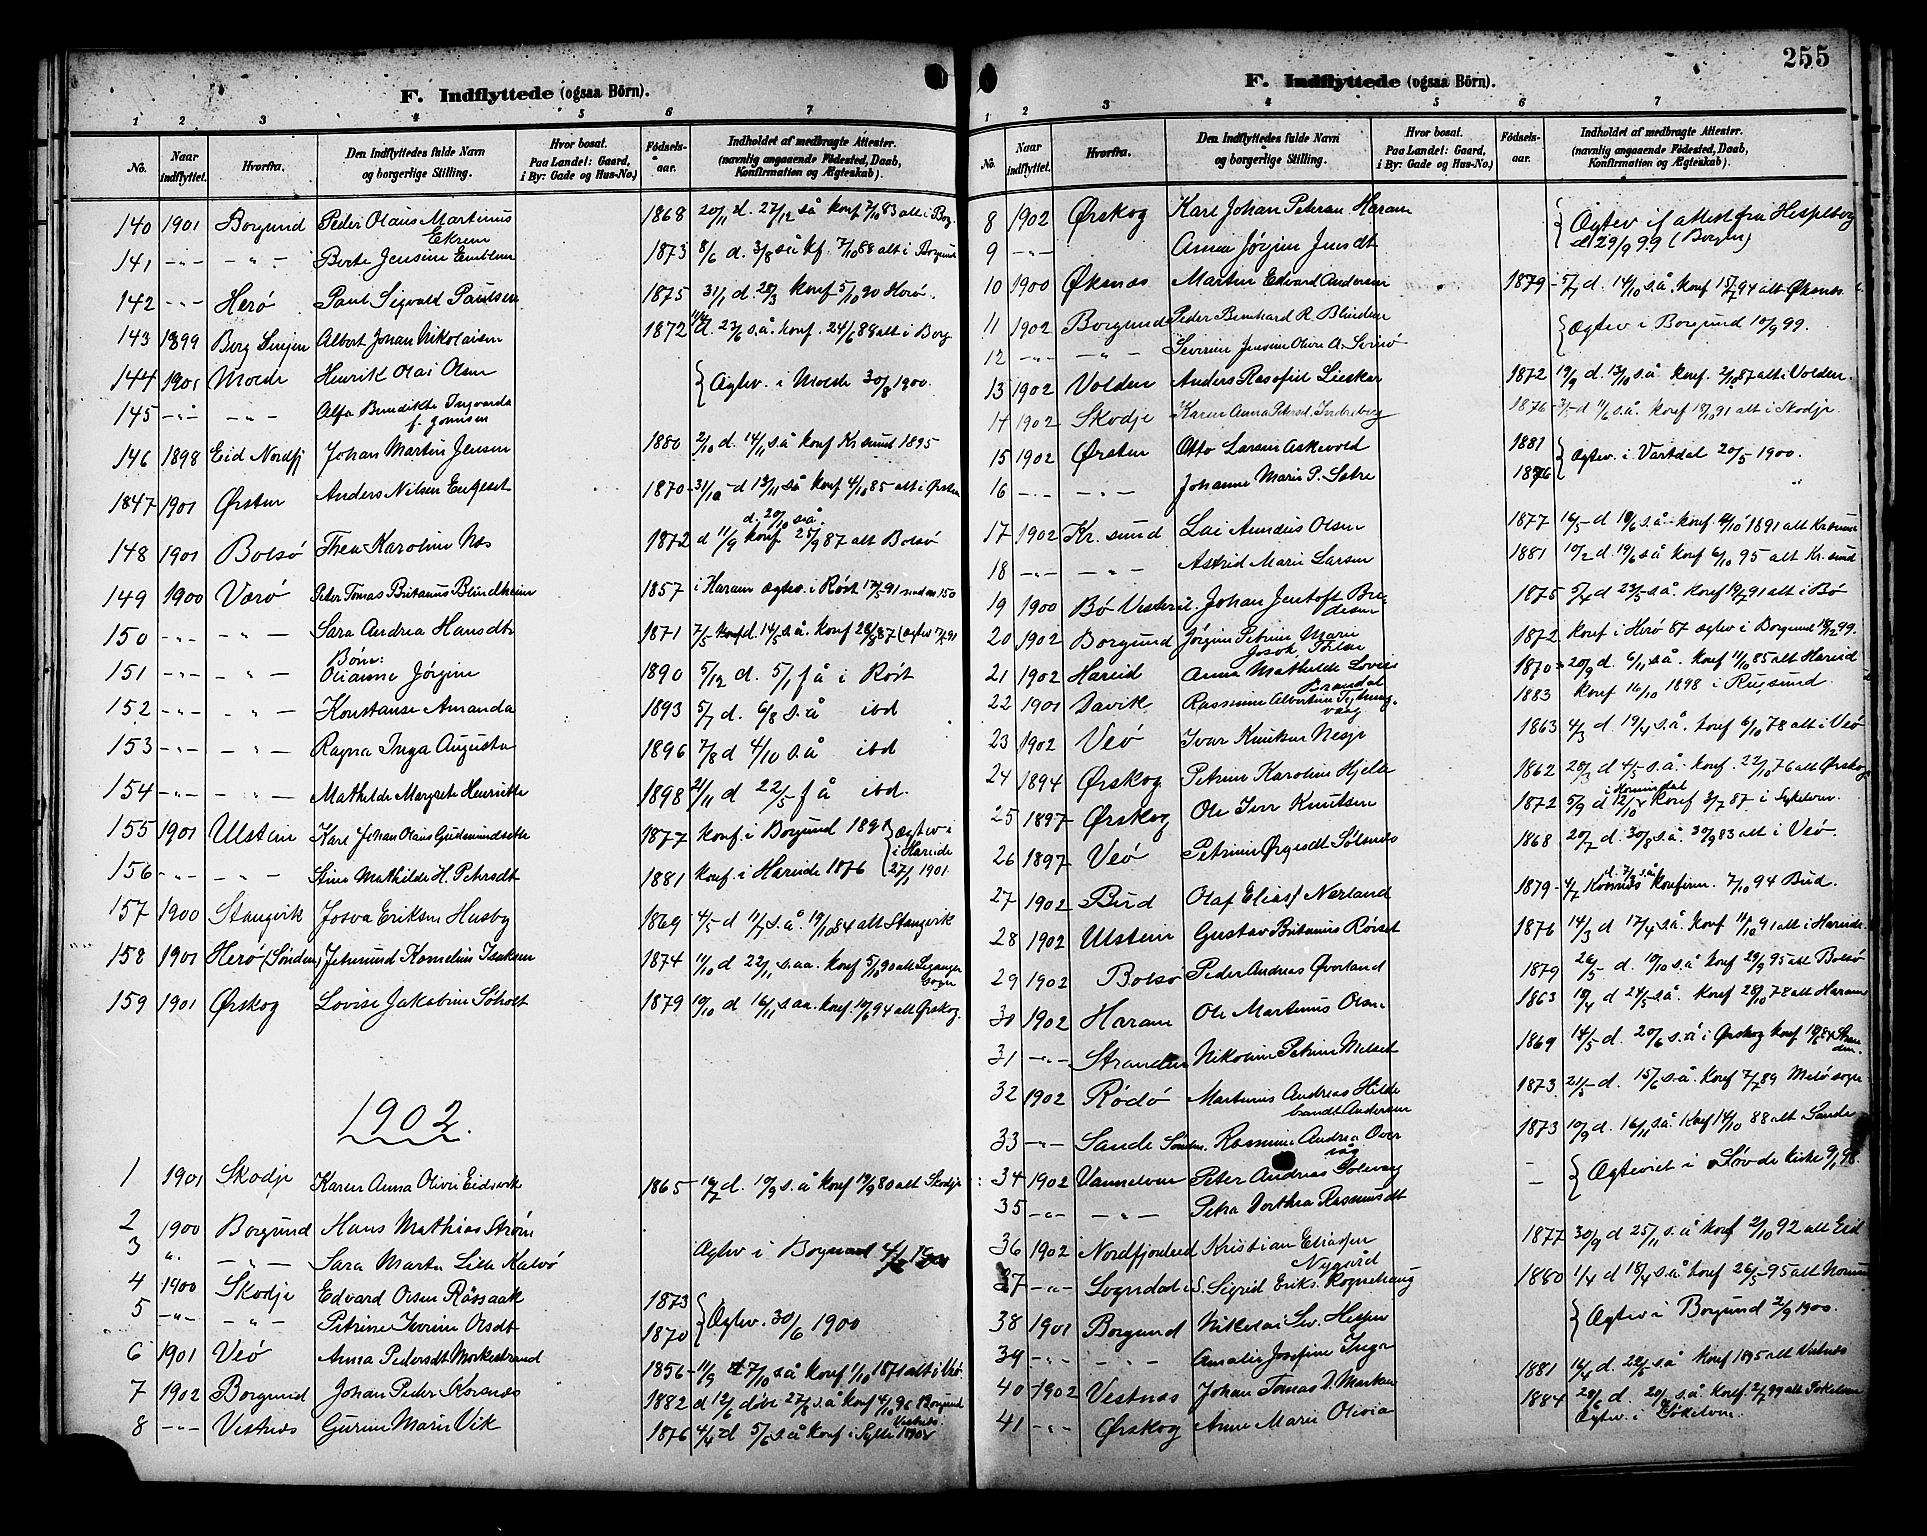 F. Indflyttede (ogsaa Börn).
1 2 3 4 5 6 7
No. Naar indflyttet. Hvorfra. Den Indflyttedes fulde Navn og borgerlige Stilling. Hvor bosat. Paa Landet: Gaard, i By: Gade og Hus-No.) Födsels-aar. Indholdet af medbragte Attester. (navnlig angaaende Födested, Daab, Konfirmation og Ægteskab).
140 1901 Borgund Peder Olaus Martinus 1868 20/11 d. 27/12 så konf 7/10 83 alt i Borg
Ekrem
141 -"- -"- Berte Jensine Emblem 1873 8/6 d. 3/8 så kf. 7/10 88 alt i Borgund
142 -"- Herø Paul Sigvald Paulsen 1875 31/1 d. 28/3 konf 5/10 90 Herø.
143 1899 Borg Albert Johan Nikolaisen 1872 d. 23/6 s.å. konf. 24/6 88 alt i Borg
144 1901 Molde Henrik Olai Olsen { Ægtev. i Molde 30/8 1900.
145 -"- -"- Alfa Bendikte Ingvarda
146 1898 Eid Nordfj Johan Martin Jensen 1880 2/10 d. 14/11 s.å konf Kr.sund 1895
1847 1901 Ørsten Anders Nilsen 1870 31/10 d 13/11 så konf 4/10 85 alt i Ørsten
d. 20/10 s.å.
148 1901 Bolsø Thea Karoline Næs 1872 d 11/9 konf 25/9 87 alt Bolsø
149 1900 Værø Peter Tomas Britanus Blindheim 1857 i Haram Ægtev. i Røst 17/5 91 med no 150
150 -"- -"- Sara Andrea Hansdtr 1871 7/5 d. 14/5 s.å. konf 28/8 87 (Ægtev 17/5 91
Børn:
151 -"- -"- Oleanna Jørgine 1890 5/12 d. 5/1 f å i Røst
152 -"- -"- Konstanse Amanda 1893 5/7 d. 6/8 s.å ibd
153 -"- -"- Ragna Inga Augusta 1896 7/8 d 4/10 s.å ibd
154 -"- -"- Mathilde Margrete Henriette 1898 21/11 d 22/5 f å ibd.
155 1901 Ulstein Karl Johan Olaus Gudmundseth 1877 konf. i Borgund 1891 { Ægtev i
i Hareide
156 -"- -"- Stine Mathilde H. Petersdt 1881 konf. i Hareide 1876 27/1 1901.
157 1900 Stangvik Josva Eriksen Husby 1869 4/5 d 11/7 s.å. 19/10 84 alt Stangvik
158 1901 Herø (Søndm) Jetmund Kornelius Isaksen 1874 11/10 d 22/11 s.aa. konf 5/10 90 alt Leganger
Sogn
159 1901 Ørskog Lovise Jakobine Søholt 1879 19/10 d 16/11 s.aa. konf. 10/6 94 alt Ørskog.
1902.
1 1901 Skodje Karen Anna Olivie Eidsvik 1865 d. 10/9 s.å konf 19/9 80 alt Skodje
2 1900 Borgund Hans Mathias Strøm
3 " -"- Sara Marta Lida Kalvø Ægtev i Borgund
4 1900 Skodje Edvard Olsen Råssaak 1873
5 -"- -"- Petrine Iverine Olsdt 1870 { Ægtev. 30/6 1900
6 1901 Veø Anna Pedersdt Morkestrand 1856 11/9 d 7/10 så konf 1/10 1871 alt i Veø.
7 1902 Borgund Johan Peder Korsnæs 1882 d 12/6 døbt 27/8 s.å konf 4/10 96 Borgund
Vestnæs
8 -"- Vestnæs Gurine Marie Vik 1876 4/4 d 5/6 s.å konf i Sylte
255
F. Indflyttede (ogsaa Börn).
1 2 3 4 5 6 7
No. Naar indflyttet. Hvorfra. Den Indflyttedes fulde Navn og borgerlige Stilling. Hvor bosat. Paa Landet: Gaard, i By: Gade og Hus-No.) Födsels-aar. Indholdet af medbragte Attester. (navnlig angaaende Födested, Daab, Konfirmation og Ægteskab).
8 1902 Ørskog Karl Johan Peterson Haram { Ægtev if attest fra
d. 29/9 99 (Bergen)
9 -"- Anna Jørgine Jensdt
10 1900 Øksnæs Martin Edvard Andersen 1879 5/7 d. 14/10 s.å. konf 15/7 94 alt Øksnæs
11 1902 Borgund Peder Bernhard R. Blindem { Ægtev i Borgund 10/9 99.
12 -"- -"- Severine Jensine Olivia A.
13 1902 Volden Anders Rasofiel Lieskar 1872 19/9 d. 13/10 s.å konf. 2/10 87 alt i Volden.
14 1902 Skodje Karen Anna Petersd. Indreberg 1876 d 11/6 s.å. konf 18/10 91 alt i Skodje
15 1902 Ørsten Otto Larsen Askevold 1881
16 -"- -"- Johanne Marie P. Sætre 1876 { Ægtev. i Vartdal 20/5 1900.
17 1902 Kr.sund Lai Amdeus Olsen 1877 16/5 d 10/6 s.å. konf 4/10 1891 alt Kr.sund
18 -"- -"- Astrid Marie Larsen 1881 10/2 d. 19/6 s.å konf 6/10 95 alt Kr.sund
19 1900 Bø Vesteraal. Johan Jentoft Bre- 1875 5/4 d 23/5 s.å. konf 19/7 91 alt i Bø
desen
20 1902 Borgund Jørgine Petrine Marie 1872 konf i Herø 87 ægtev i Borgund 18/12 99.
21 1902 Hareid Anna Mathilde Lovise 1870 20/9 d. 6/11 s.å. konf 11/10 85 alt Hareid
Brandal
22 1901 Davik Rasmine Albertine 1883 konf 16/10 1898 i Rugsund.
23 1902 Veø Ivar Knutsen Nesje 1863 4/3 d. 19/4 s.å. konf 6/10 78 alt i Veø
24 1894 Ørskog Petrine Karoline Hjelle 1862 28/3 d 4/5 s.å. konf. 22/10 76 alt Ørskog
i Hornindal
25 1897 Ørskog Ole Iver Knutsen 1872 5/9 d 12/10 konf 3/7 87 i Sykelven.
26 1897 Veø Petrine Ørgesdt Sølsnæs 1868 20/7 d. 30/8 s.å. 30/9 83 alt i Veø.
27 1902 Bud Olaf Eliass Nerland 1879 4/7 konfirm. 7/10 94 Bud.
28 1902 Ulstein Gustav Britanus Røiset 1876 14/3 d 17/4 s.å. konf 11/10 91 alt i Hareide.
29 1902 Bolsø Peder Andreas Øverland 1879 26/5 d. 19/10 s.å konf 29/9 95 alt Bolsø
30 1902 Haram Ole Martinus Olsen 1863 19/4 d 24/5 s.å. konf 28/10 78 alt Haram
31 -"- Stranden Nikoline Petrine Melset 1869 14/5 d. 20/6 s.å i Ørskog konf 84 Stran
den.
32 1902 Rødø Martinus Andreas Hilde 1873 21/5 d. 15/6 s.å. konf 7/7 89 Melø sogn
brandt Andersen
33 -"- Sande Søndm. Rasmine Andrea Over 1873 10/9 d. 16/11 s.å konf 14/10 88 alt Sande
våg
34 1902 Vannelven Peter Andreas Solevåg { Ægteviet i Søvde kirke 9/1 98.
35 -"- -"- Petra Dorthea Rasmusdt
36 1902 Nordfjordeid Kristian Eliassen 1877 30/9 d 25/11 s.å konf 2/10 92 alt Eid
Nygård
37 -"- Sogndal i S. Sigrid Eriks. Rognehaug 1880 1/4 d 18/4 s.å. konf 26/5 95 alt
38 1901 Borgund Nikolai Sev. Hessen { Ægtev i Borgund 2/9 1900.
39 -"- -"- Amalie Josefine Inga
40 1902 Vestnæs Johan Tomas D. Marken 1881 16/4 d. 22/5 s.å konf 1895 alt Vestnæs
41 -"- Ørskog Anne Marie Olivia 1884 28/6 d. 20/7 s.å konf. 2/7 99 alt Søkelven
Ægtev. i Søkelven.